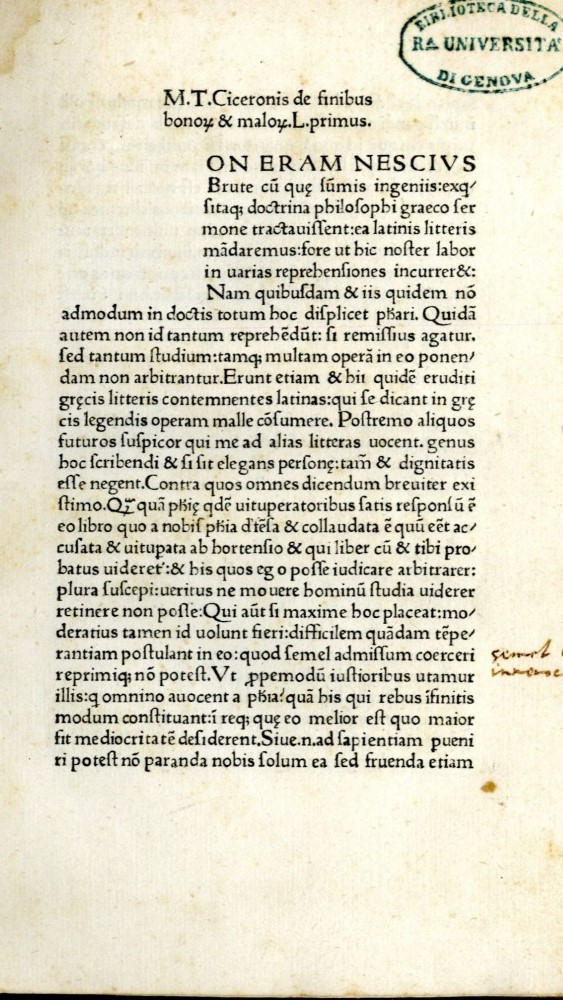 BIBLIOTECA DELLA
RA. UNIVERSITA'
DI GENOVA
M.T.Ciceronis de finibus
bonoꝝ & maloꝝ.L.primus.
ON ERAM NESCIVS
Brute cū quę sūmis ingeniis:exq/
sitaqꝫ doctrina philosophi graeco ser
mone tractauissent:ea latinis litteris
mādaremus:fore ut hic noster labor
in uarias reprehensiones incurret&:
Nam quibusdam & iis quidem nō
admodum in doctis totum hoc displicet pħari. Quidā
autem non id tantum reprehēdūt: si remissius agatur.
sed tantum studium:tamqꝫ multam operā in eo ponen/
dam non arbitrantur.Erunt etiam & hii quidē eruditi
gręcis litteris contemnentes latinas:qui se dicant in grę
cis legendis operam malle cōsumere. Postremo aliquos
futuros suspicor qui me ad alias litteras uocent. genus
hoc scribendi & si sit elegans personę:tam̄ & dignitatis
esse negent.Contra quos omnes dicendum breuiter exi
stimo.Qꝫ quā pħię qdē uituperatoribus satis responsū ē
eo libro quo a nobis pħia d'fēsa & collaudata ē quū eēt ac/
cusata & uitupata ab hortensio & qui liber cū & tibi pro/
batus uideret':& his quos ego posse iudicare arbitrarer:
plura suscepi:ueritus ne mouere hominū studia uiderer
retinere non posse:Qui aūt si maxime hoc placeat:mo/
deratius tamen id uolunt fieri:difficilem quādam tēpe/
rantiam postulant in eo:quod semel admissum coerceri
reprimiqꝫ nō potest.Vt ꝓpemodū iustioribus utamur
illis:q omnino auocent a pħia:quā his qui rebus īfinitis
modum constituant:ī reqꝫ quę eo melior est quo maior
sit mediocritatē desiderent.Siue.n.ad sapientiam pueni
ri potest nō paranda nobis solum ea sed fruenda etiam